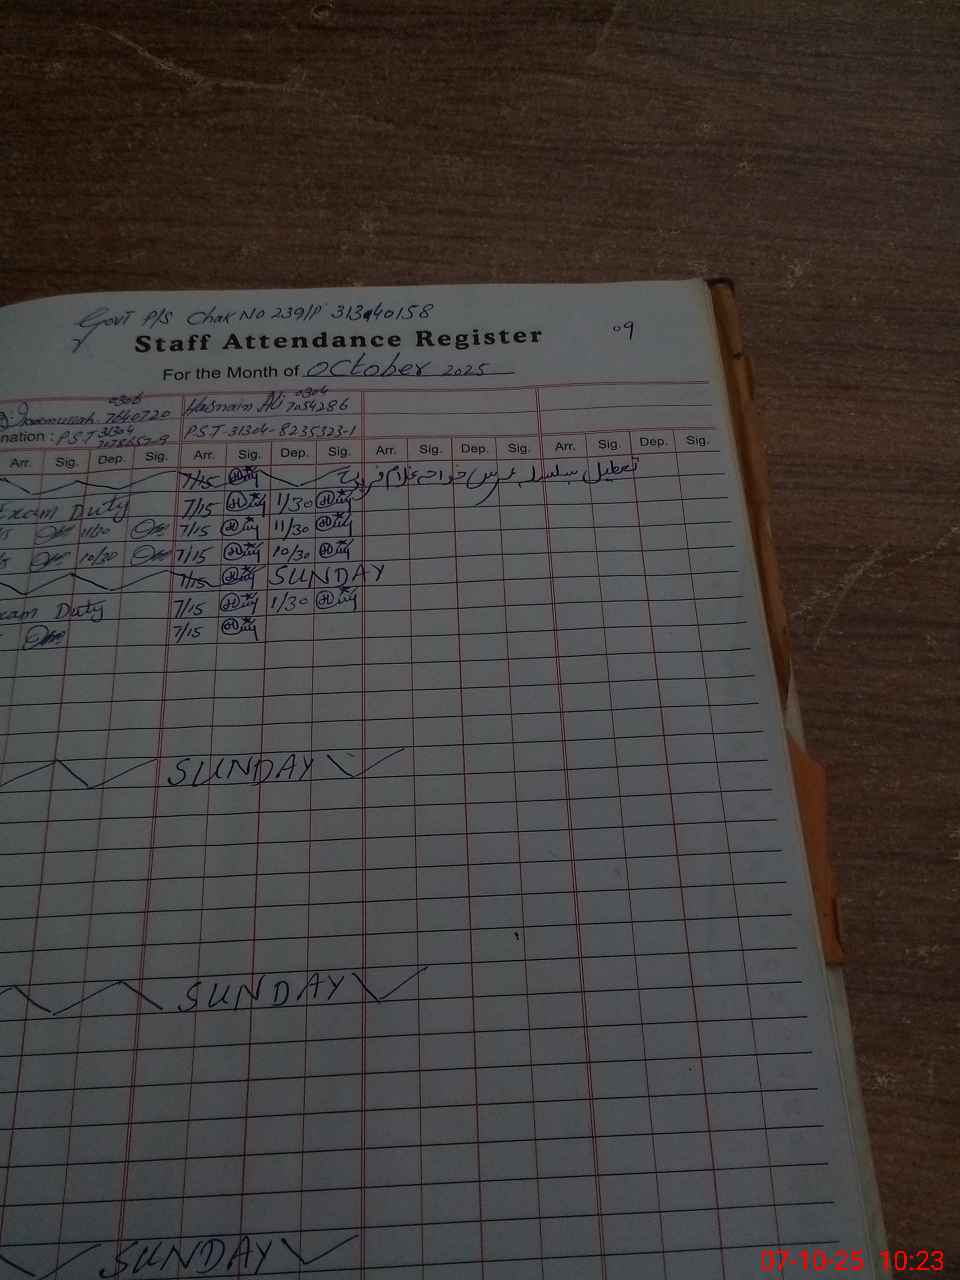 Govt P/S Chak No 239/P 31340158
Staff Attendance Register
09
For the Month of October 2025
0306 0304
7640720 Hasnain Ali 7054286
nation : P.S.T 31304 P.S.T-31304-8235323-1
Arr. Sig. Dep. Sig. Arr. Sig. Dep. Sig. Arr. Sig. Dep. Sig. Arr. Sig. Dep. Sig.
7/15 تعطیل بسلسلہ عرس خواجہ غلام فرید
Exam Duty 7/15 1/30
11/30 7/15 11/30
10/30 7/15 10/30
7/15 SUNDAY
xam Duty 7/15 1/30
7/15
SUNDAY
SUNDAY
SUNDAY
07-10-25 10:23